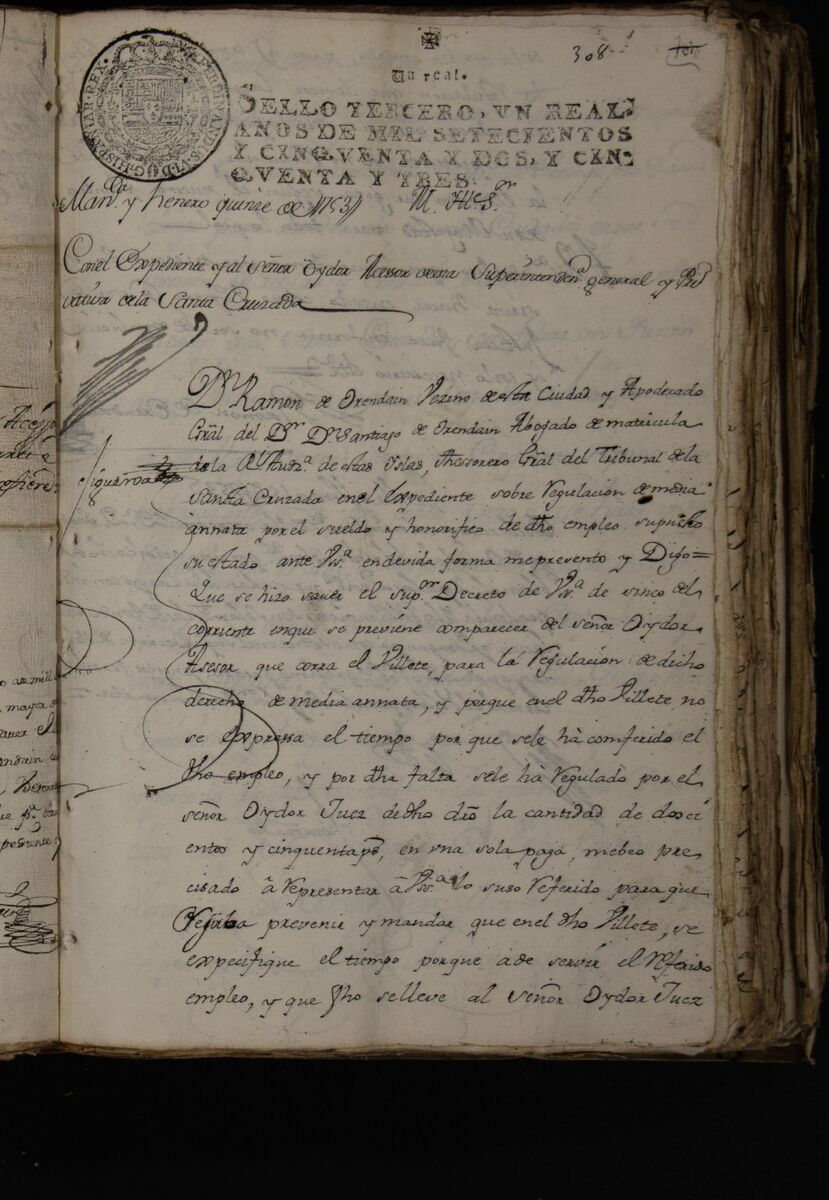 308
Un real.
SELLO TERCERO, VN REAL,
AÑOS DE MIL SETECIENTOS
Y CINQVENTA Y DOS, Y CIN-
QVENTA Y TRES.
FERDINANDUS VI D G HISPANIAR REX
Man.ª y henero quinze de 1753 M. Iltᵉ Sᵒʳ
Con el Expediente y al señor Oydor Acessor de esta Superintendenª general y
de la Santa Cruzada
Dⁿ Ramon de Orendain Vezino de esta Ciudad y Apoderado
Gral del Dʳ Dⁿ Santiago de Orendain Abogado de matricula
de la Rˡ Audª de estas Yslas, thessorero Gral del Tribunal de la
Santa Cruzada en el Expediente sobre Regulacion de media
annata por el sueldo y honorifico de dho empleo supuesto
su estado ante Vsª en devida forma me presento y Digo=
Que se hizo saver el supᵒʳ Decreto de Vsª de sinco del
corriente en que se previene comparecer del señor Oydor
Asesor que corra el Villete, para la Regulacion de dicho
derecho de media annata, y porque en el dho Villete no
se expressa el tiempo por que sele hà comferido el
dho empleo, y por dha falta sele hà Regulado por el
señor Oydor Juez de dho dro la cantidad de dosci
entos y cinquenta pˢ, en vna sola paga, me beo pre
cisado â representar â Vsª lo suso Referido para que
prevenir y mandar que en el dho Villete, se
expecifique el tiempo porque à de servir el Referido
empleo, y que fho se lleve al señor Oydor Juez